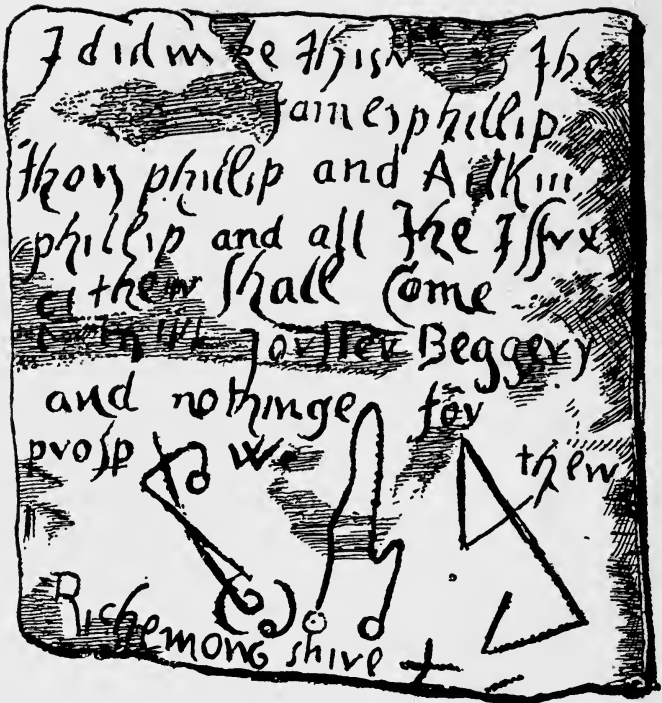 I did m ke this the
ames phillip
Ihon phillip and A kin
phillip and all the Issue
of them shall Come
Beggery
and nothinge for
prosp w. them
Richemong shire